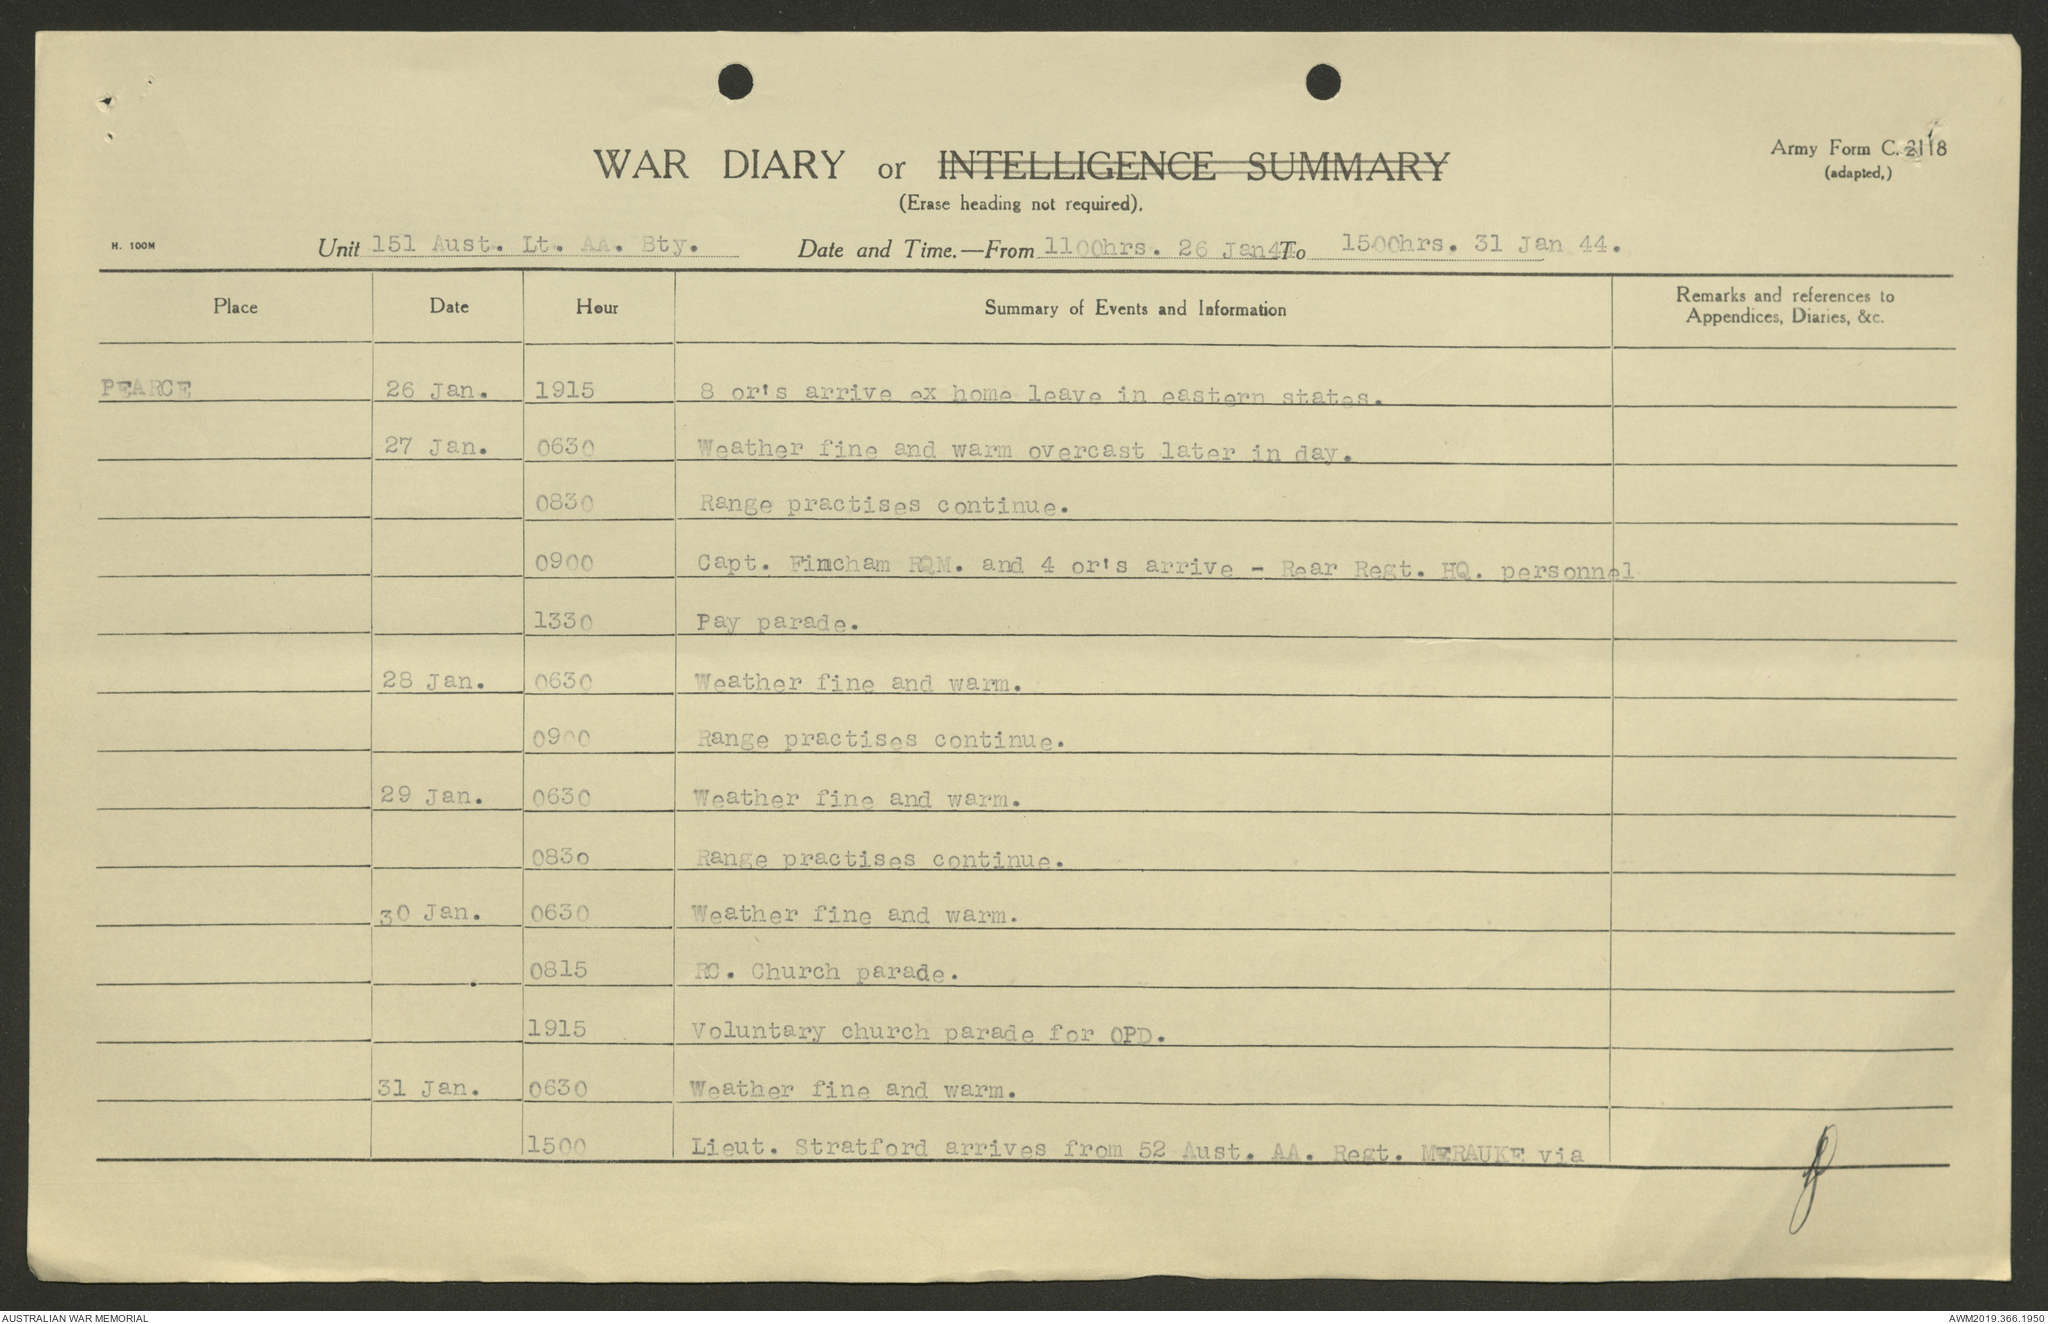 WAR DIARY or INTELLIGENCE SUMMARY
(Erase heading not required).
Army Form C. 2118
(adapted,)
H. 100M
Unit 151 Aust. Lt. AA. Bty. Date and Time.—From 1100hrs. 26 Jan44 To 1500hrs. 31 Jan 44.
Place Date Hour Summary of Events and Information Remarks and references to
Appendices, Diaries, &c.
PEARCE 26 Jan. 1915 8 or's arrive ex home leave in eastern states.
27 Jan. 0630 Weather fine and warm overcast later in day.
0830 Range practises continue.
0900 Capt. Fincham RQM. and 4 or's arrive - Rear Regt. HQ. personnel
1330 Pay parade.
28 Jan. 0630 Weather fine and warm.
0900 Range practises continue.
29 Jan. 0630 Weather fine and warm.
0830 Range practises continue.
30 Jan. 0630 Weather fine and warm.
0815 RC. Church parade.
1915 Voluntary church parade for OPD.
31 Jan. 0630 Weather fine and warm.
1500 Lieut. Stratford arrives from 52 Aust. AA. Regt. MERAUKE via
AUSTRALIAN WAR MEMORIAL AWM2019.366.1950